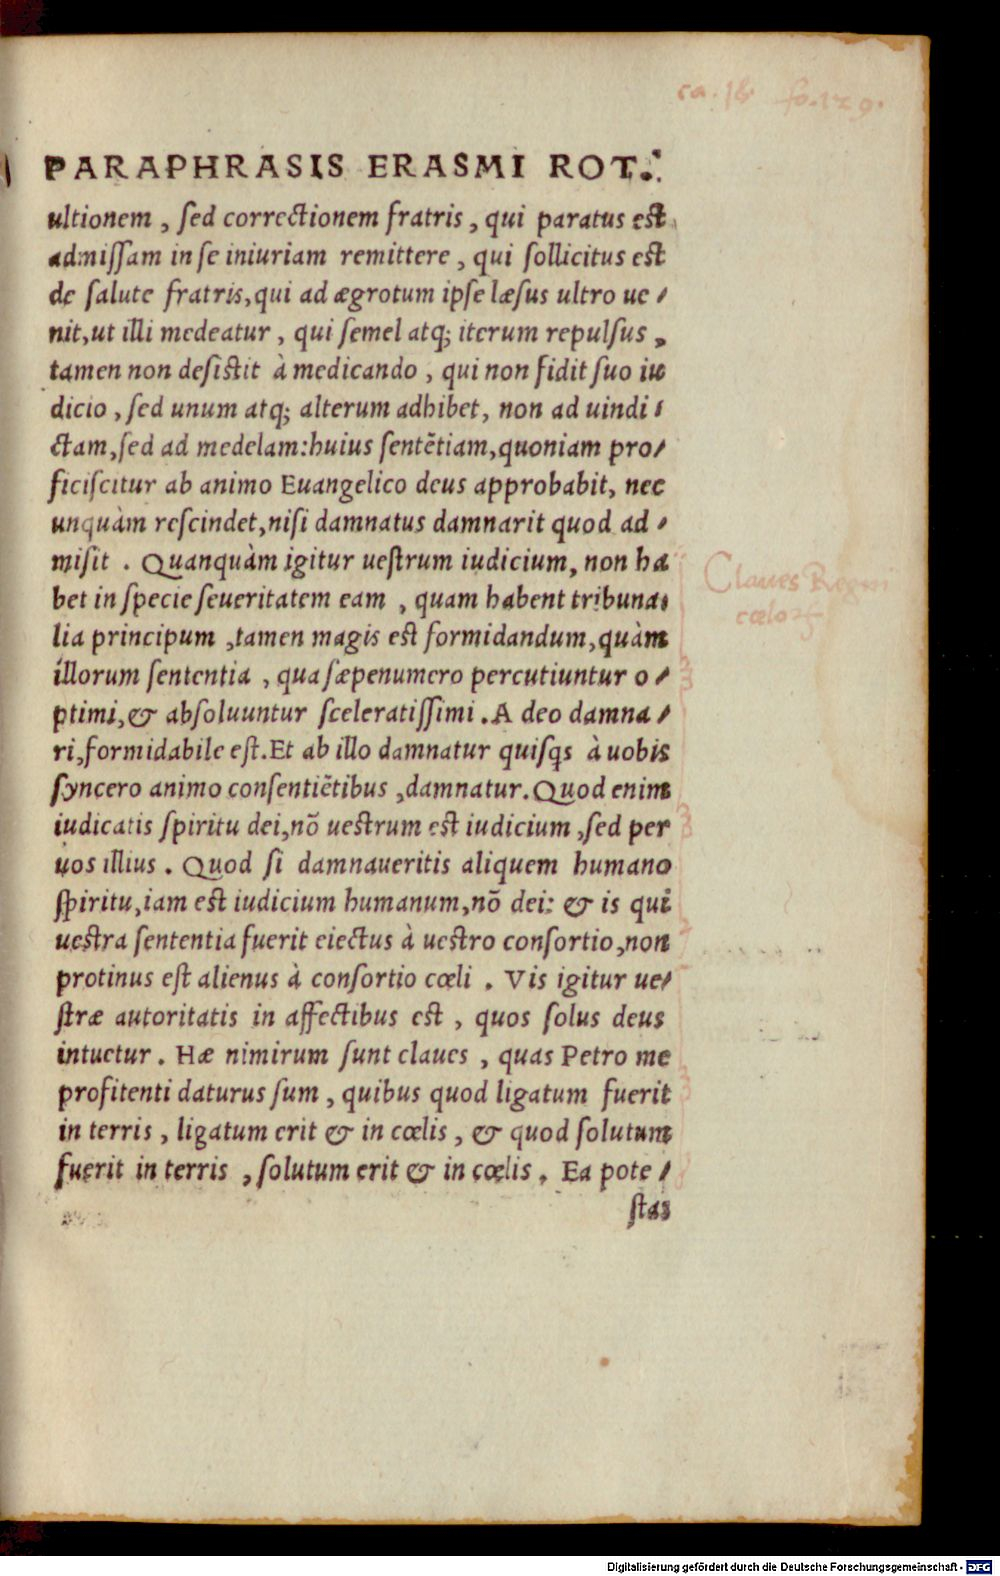 ca. 18. fo. 129.
PARAPHRASIS ERASMI ROT.
ultionem, sed correctionem fratris, qui paratus est
admissam in se iniuriam remittere, qui sollicitus est
de salute fratris, qui ad ægrotum ipse læsus ultro ue-
nit, ut illi medeatur, qui semel atq; iterum repulsus,
tamen non desistit à medicando, qui non fidit suo iu
dicio, sed unum atq; alterum adhibet, non ad uindi-
ctam, sed ad medelam: huius sentẽtiam, quoniam pro-
ficiscitur ab animo Euangelico deus approbabit, nec
unquàm rescindet, nisi damnatus damnarit quod ad-
misit. Quanquàm igitur uestrum iudicium, non ha
bet in specie seueritatem eam, quam habent tribuna-
lia principum, tamen magis est formidandum, quàm
illorum sententia, qua sæpenumero percutiuntur o-
ptimi, & absoluuntur sceleratissimi. A deo damna-
ri, formidabile est. Et ab illo damnatur quisqs à uobis
syncero animo consentiẽtibus, damnatur. Quod enim
iudicatis spiritu dei, nõ uestrum est iudicium, sed per
uos illius. Quod si damnaueritis aliquem humano
spiritu, iam est iudicium humanum, nõ dei: & is qui
uestra sententia fuerit eiectus à uestro consortio, non
protinus est alienus à consortio cœli. Vis igitur ue-
stræ autoritatis in affectibus est, quos solus deus
intuetur. Hæ nimirum sunt claues, quas Petro me
profitenti daturus sum, quibus quod ligatum fuerit
in terris, ligatum erit & in cœlis, & quod solutum
fuerit in terris, solutum erit & in cœlis. Ea pote-
stas
Claues Regni
cœloꝝ
Digitalisierung gefördert durch die Deutsche Forschungsgemeinschaft - DFG